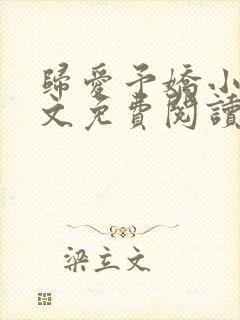 歸愛予嬌小
文免費閱讀
梁立文